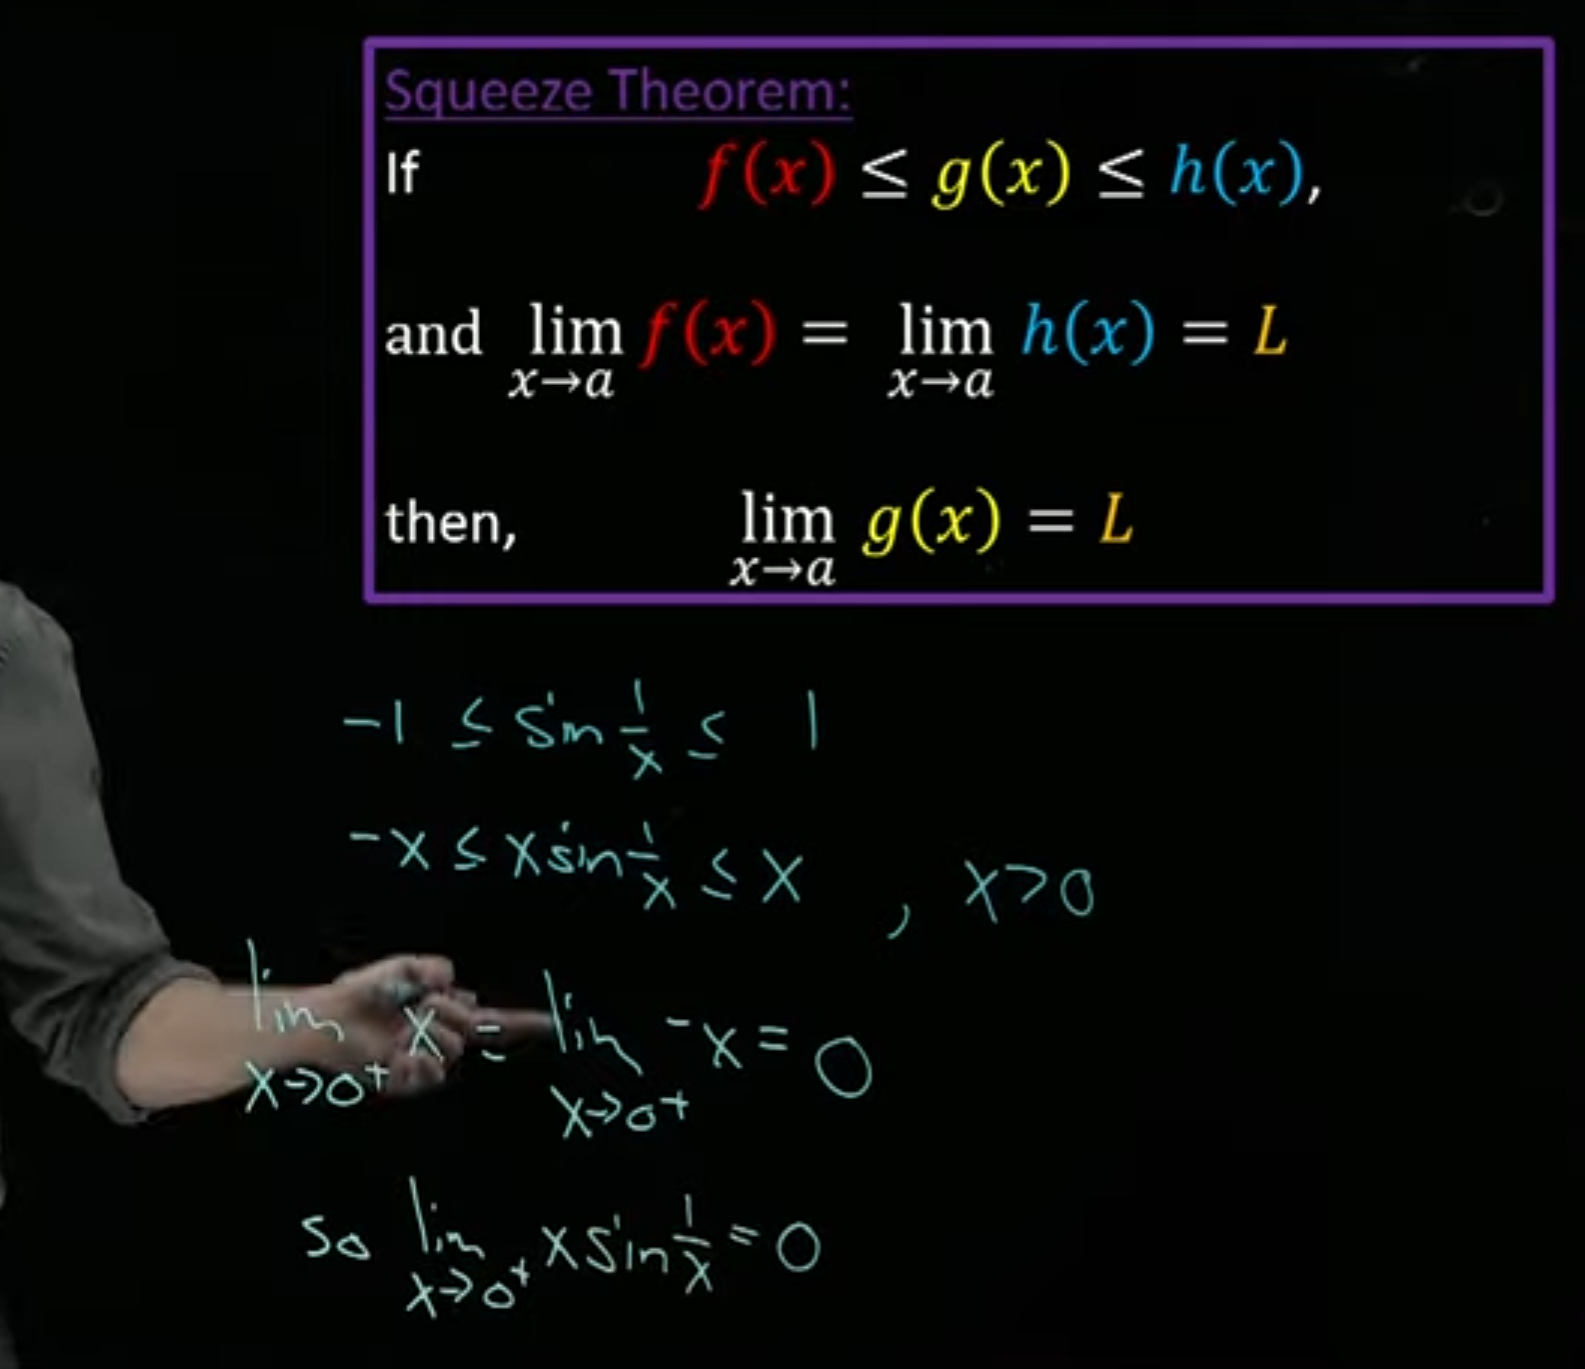 Squeeze Theorem:
If f(x) ≤ g(x) ≤ h(x),
and lim x→a f(x) = lim x→a h(x) = L
then, lim x→a g(x) = L
-1 ≤ sin 1/x ≤ 1
-x ≤ x sin 1/x ≤ x , x>0
lim x→0⁺ x = lim x→0⁺ -x = 0
So lim x→0⁺ x sin 1/x = 0